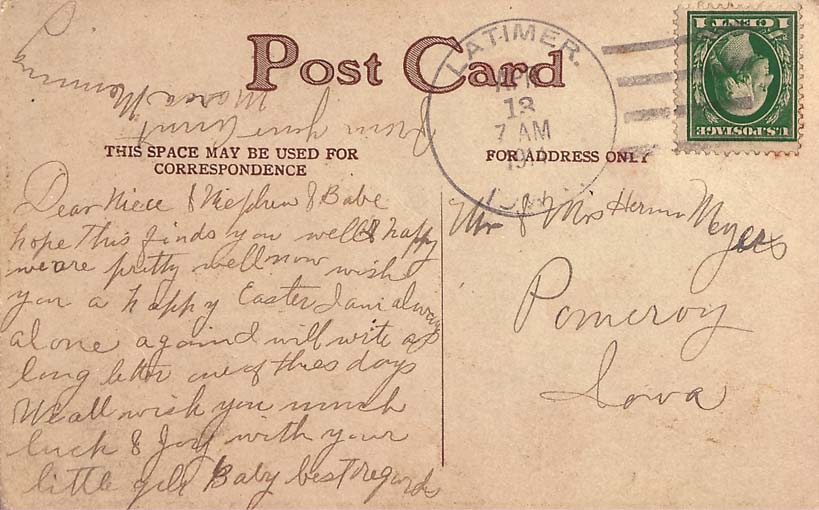 Post Card
THIS SPACE MAY BE USED FOR
CORRESPONDENCE
FOR ADDRESS ONLY
LATIMER.
13
7 AM
1 CENT 1
U.S.POSTAGE
Dear Niece & Niephew & Babe
hope this finds you well & happy
we are pretty well now wish
you a happy Easter I am always
alone again will write a
long letter one of thies days
We all wish you much
luck & Joy with your
little Baby best regards
From your Aunt
Mr & Mrs Herman Meyers
Pomeroy
Iowa